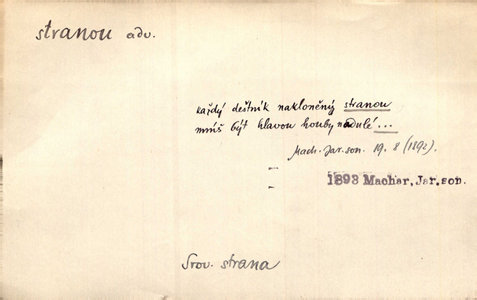 stranou adv.
každý deštník nakloněný stranou
mníš být hlavou houby nadulé...
Mach. Jar. son. 19. 8 (1892).
1893 Machar, Jar. son.
Srov. strana